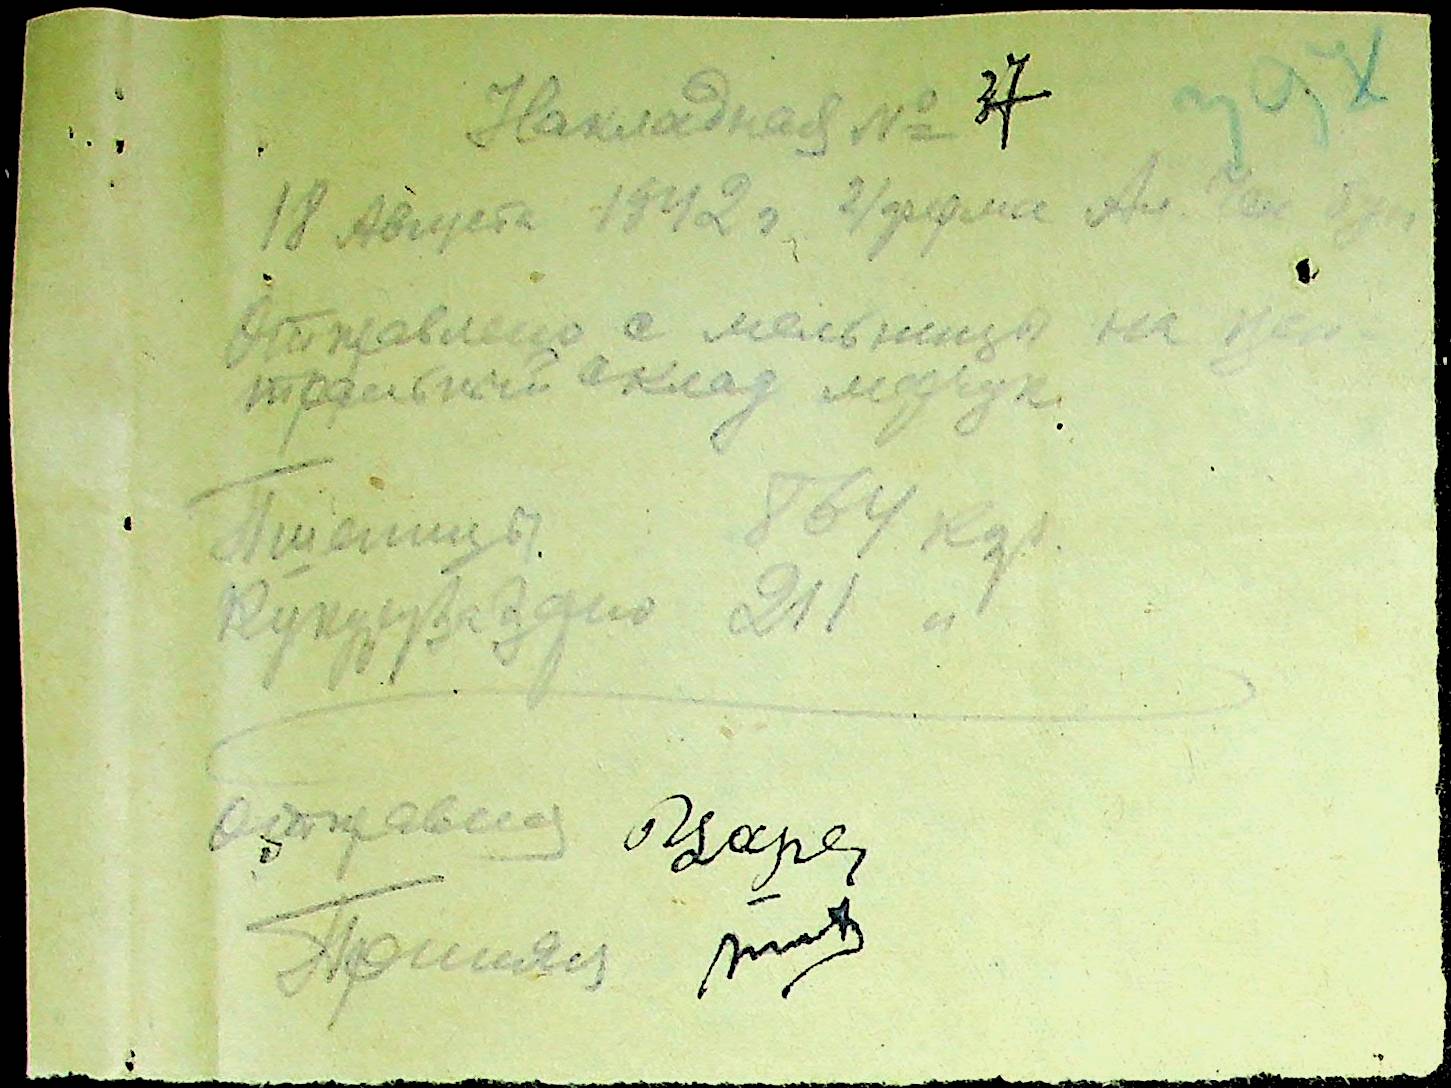 Накладная № 37
18 Августа 1942 г. 2/ферма
Отправлено с мельницы на цен-
тральный склад
Пшеницы 864 кгр.
Кукуруза зерно 211 "
Отправил
Принял